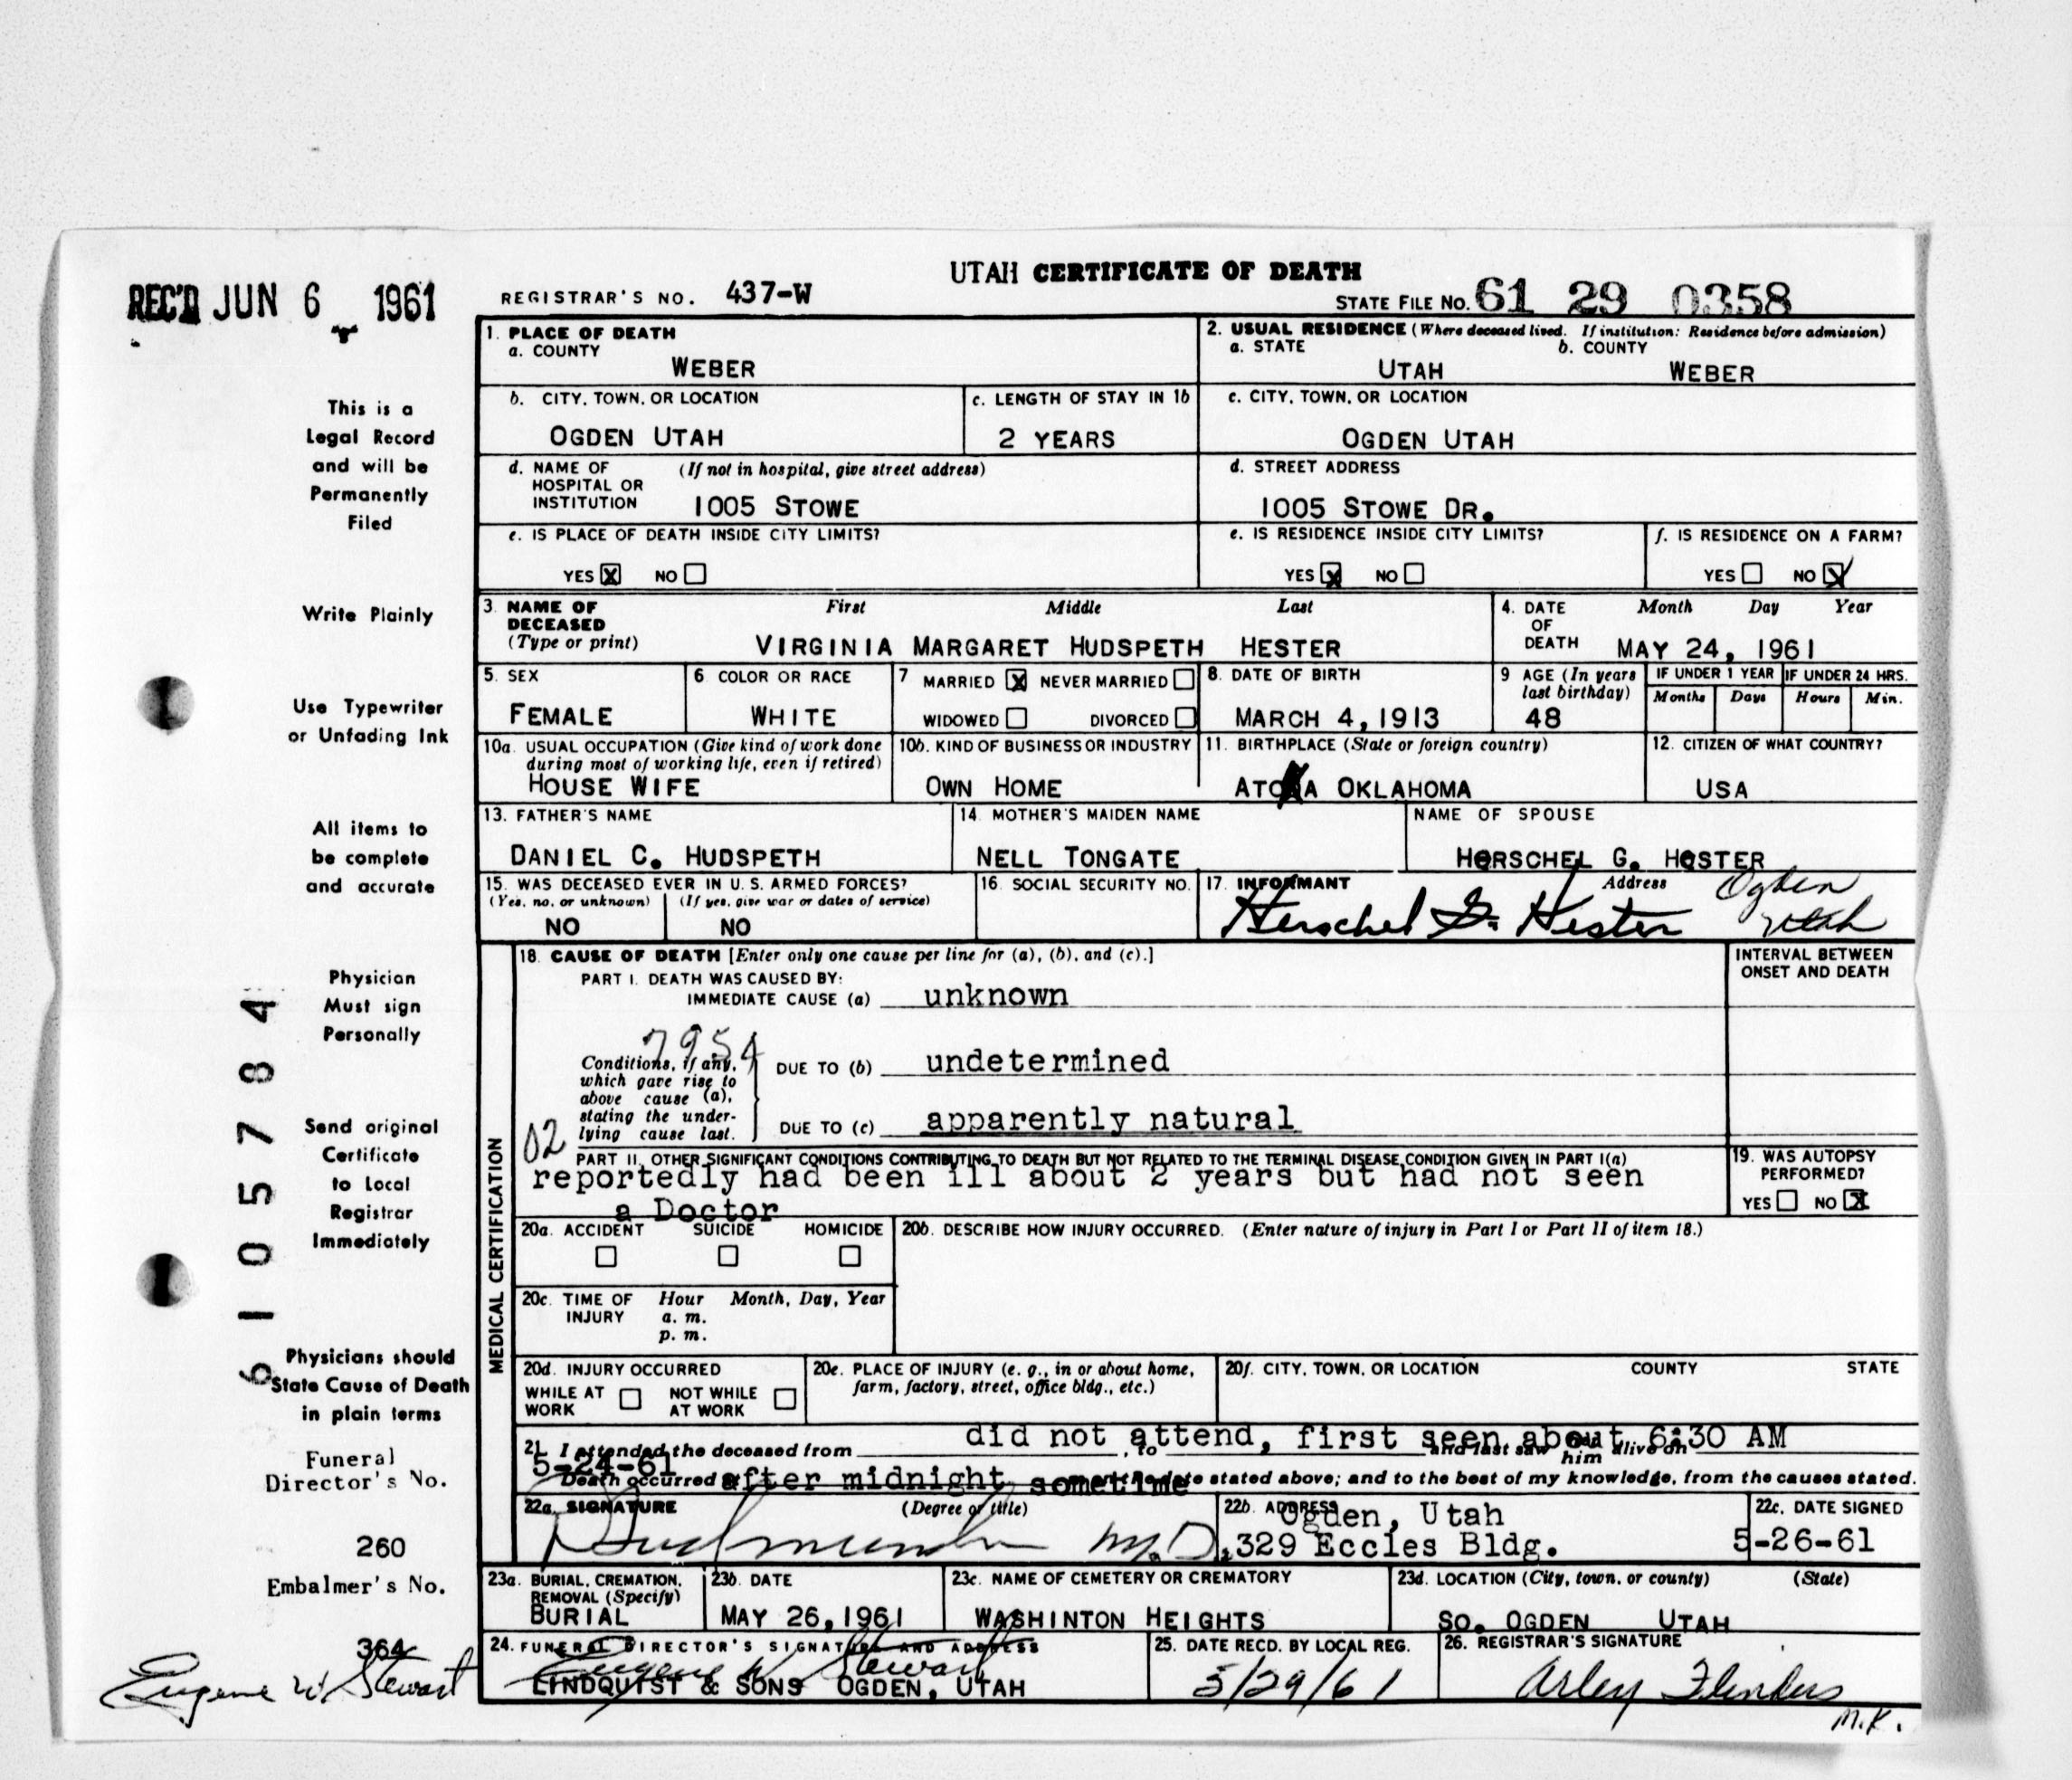 UTAH CERTIFICATE OF DEATH
REC'D JUN 6 1961
REGISTRAR'S NO. 437-W
STATE FILE NO. 61 29 0358
This is a
Legal Record
and will be
Permanently
Filed
Write Plainly
Use Typewriter
or Unfading Ink
All items to
be complete
and accurate
Physician
Must sign
Personally
Send original
Certificate
to Local
Registrar
Immediately
Physicians should
State Cause of Death
in plain terms
Funeral
Director's No.
260
Embalmer's No.
364
Eugene W Stewart
6105784
1. PLACE OF DEATH
a. COUNTY
WEBER
2. USUAL RESIDENCE (Where deceased lived. If institution: Residence before admission)
a. STATE b. COUNTY
UTAH WEBER
b. CITY, TOWN, OR LOCATION
OGDEN UTAH
c. LENGTH OF STAY IN 1b
2 YEARS
c. CITY, TOWN, OR LOCATION
OGDEN UTAH
d. NAME OF (If not in hospital, give street address)
HOSPITAL OR
INSTITUTION 1005 STOWE
d. STREET ADDRESS
1005 STOWE DR.
e. IS PLACE OF DEATH INSIDE CITY LIMITS?
YES X NO
e. IS RESIDENCE INSIDE CITY LIMITS?
YES X NO
f. IS RESIDENCE ON A FARM?
YES NO X
3. NAME OF First Middle Last
DECEASED
(Type or print) VIRGINIA MARGARET HUDSPETH HESTER
4. DATE Month Day Year
OF
DEATH MAY 24, 1961
5. SEX
FEMALE
6. COLOR OR RACE
WHITE
7 MARRIED X NEVER MARRIED
WIDOWED DIVORCED
8. DATE OF BIRTH
MARCH 4, 1913
9 AGE (In years
last birthday)
48
IF UNDER 1 YEAR IF UNDER 24 HRS.
Months Days Hours Min.
10a. USUAL OCCUPATION (Give kind of work done
during most of working life, even if retired)
HOUSE WIFE
10b. KIND OF BUSINESS OR INDUSTRY
OWN HOME
11. BIRTHPLACE (State or foreign country)
OKLAHOMA
12. CITIZEN OF WHAT COUNTRY?
USA
13. FATHER'S NAME
DANIEL C. HUDSPETH
14. MOTHER'S MAIDEN NAME
NELL TONGATE
NAME OF SPOUSE
HERSCHEL G. HESTER
15. WAS DECEASED EVER IN U.S. ARMED FORCES?
(Yes, no, or unknown) (If yes, give war or dates of service)
NO NO
16. SOCIAL SECURITY NO.
17. INFORMANT Address
Herschel G. Hester Ogden
Utah
18. CAUSE OF DEATH [Enter only one cause per line for (a), (b), and (c).]
INTERVAL BETWEEN
ONSET AND DEATH
PART I. DEATH WAS CAUSED BY:
IMMEDIATE CAUSE (a) unknown
7954
Conditions, if any,
which gave rise to
above cause (a),
stating the under-
lying cause last.
DUE TO (b) undetermined
DUE TO (c) apparently natural
02
PART II. OTHER SIGNIFICANT CONDITIONS CONTRIBUTING TO DEATH BUT NOT RELATED TO THE TERMINAL DISEASE CONDITION GIVEN IN PART I(a)
reportedly had been ill about 2 years but had not seen
a Doctor
19. WAS AUTOPSY
PERFORMED?
YES NO X
MEDICAL CERTIFICATION
20a. ACCIDENT SUICIDE HOMICIDE
20b. DESCRIBE HOW INJURY OCCURRED. (Enter nature of injury in Part I or Part II of item 18.)
20c. TIME OF Hour Month, Day, Year
INJURY a. m.
p. m.
20d. INJURY OCCURRED
WHILE AT NOT WHILE
WORK AT WORK
20e. PLACE OF INJURY (e. g., in or about home,
farm, factory, street, office bldg., etc.)
20f. CITY, TOWN, OR LOCATION COUNTY STATE
did not attend, first seen about 6:30 AM
21. I attended the deceased from , to and last saw him alive on
5-24-61
Death occurred at after midnight sometime on the date stated above; and to the best of my knowledge, from the causes stated.
22a. SIGNATURE (Degree or title)
M.D.
22b. ADDRESS
Ogden, Utah
329 Eccles Bldg.
22c. DATE SIGNED
5-26-61
23a. BURIAL, CREMATION,
REMOVAL (Specify)
BURIAL
23b. DATE
MAY 26, 1961
23c. NAME OF CEMETERY OR CREMATORY
WASHINTON HEIGHTS
23d. LOCATION (City, town, or county) (State)
SO. OGDEN UTAH
24. FUNERAL DIRECTOR'S SIGNATURE AND ADDRESS
Eugene W Stewart
LINDQUIST & SONS OGDEN, UTAH
25. DATE RECD. BY LOCAL REG.
5/29/61
26. REGISTRAR'S SIGNATURE
Arley Flinders
M.K.